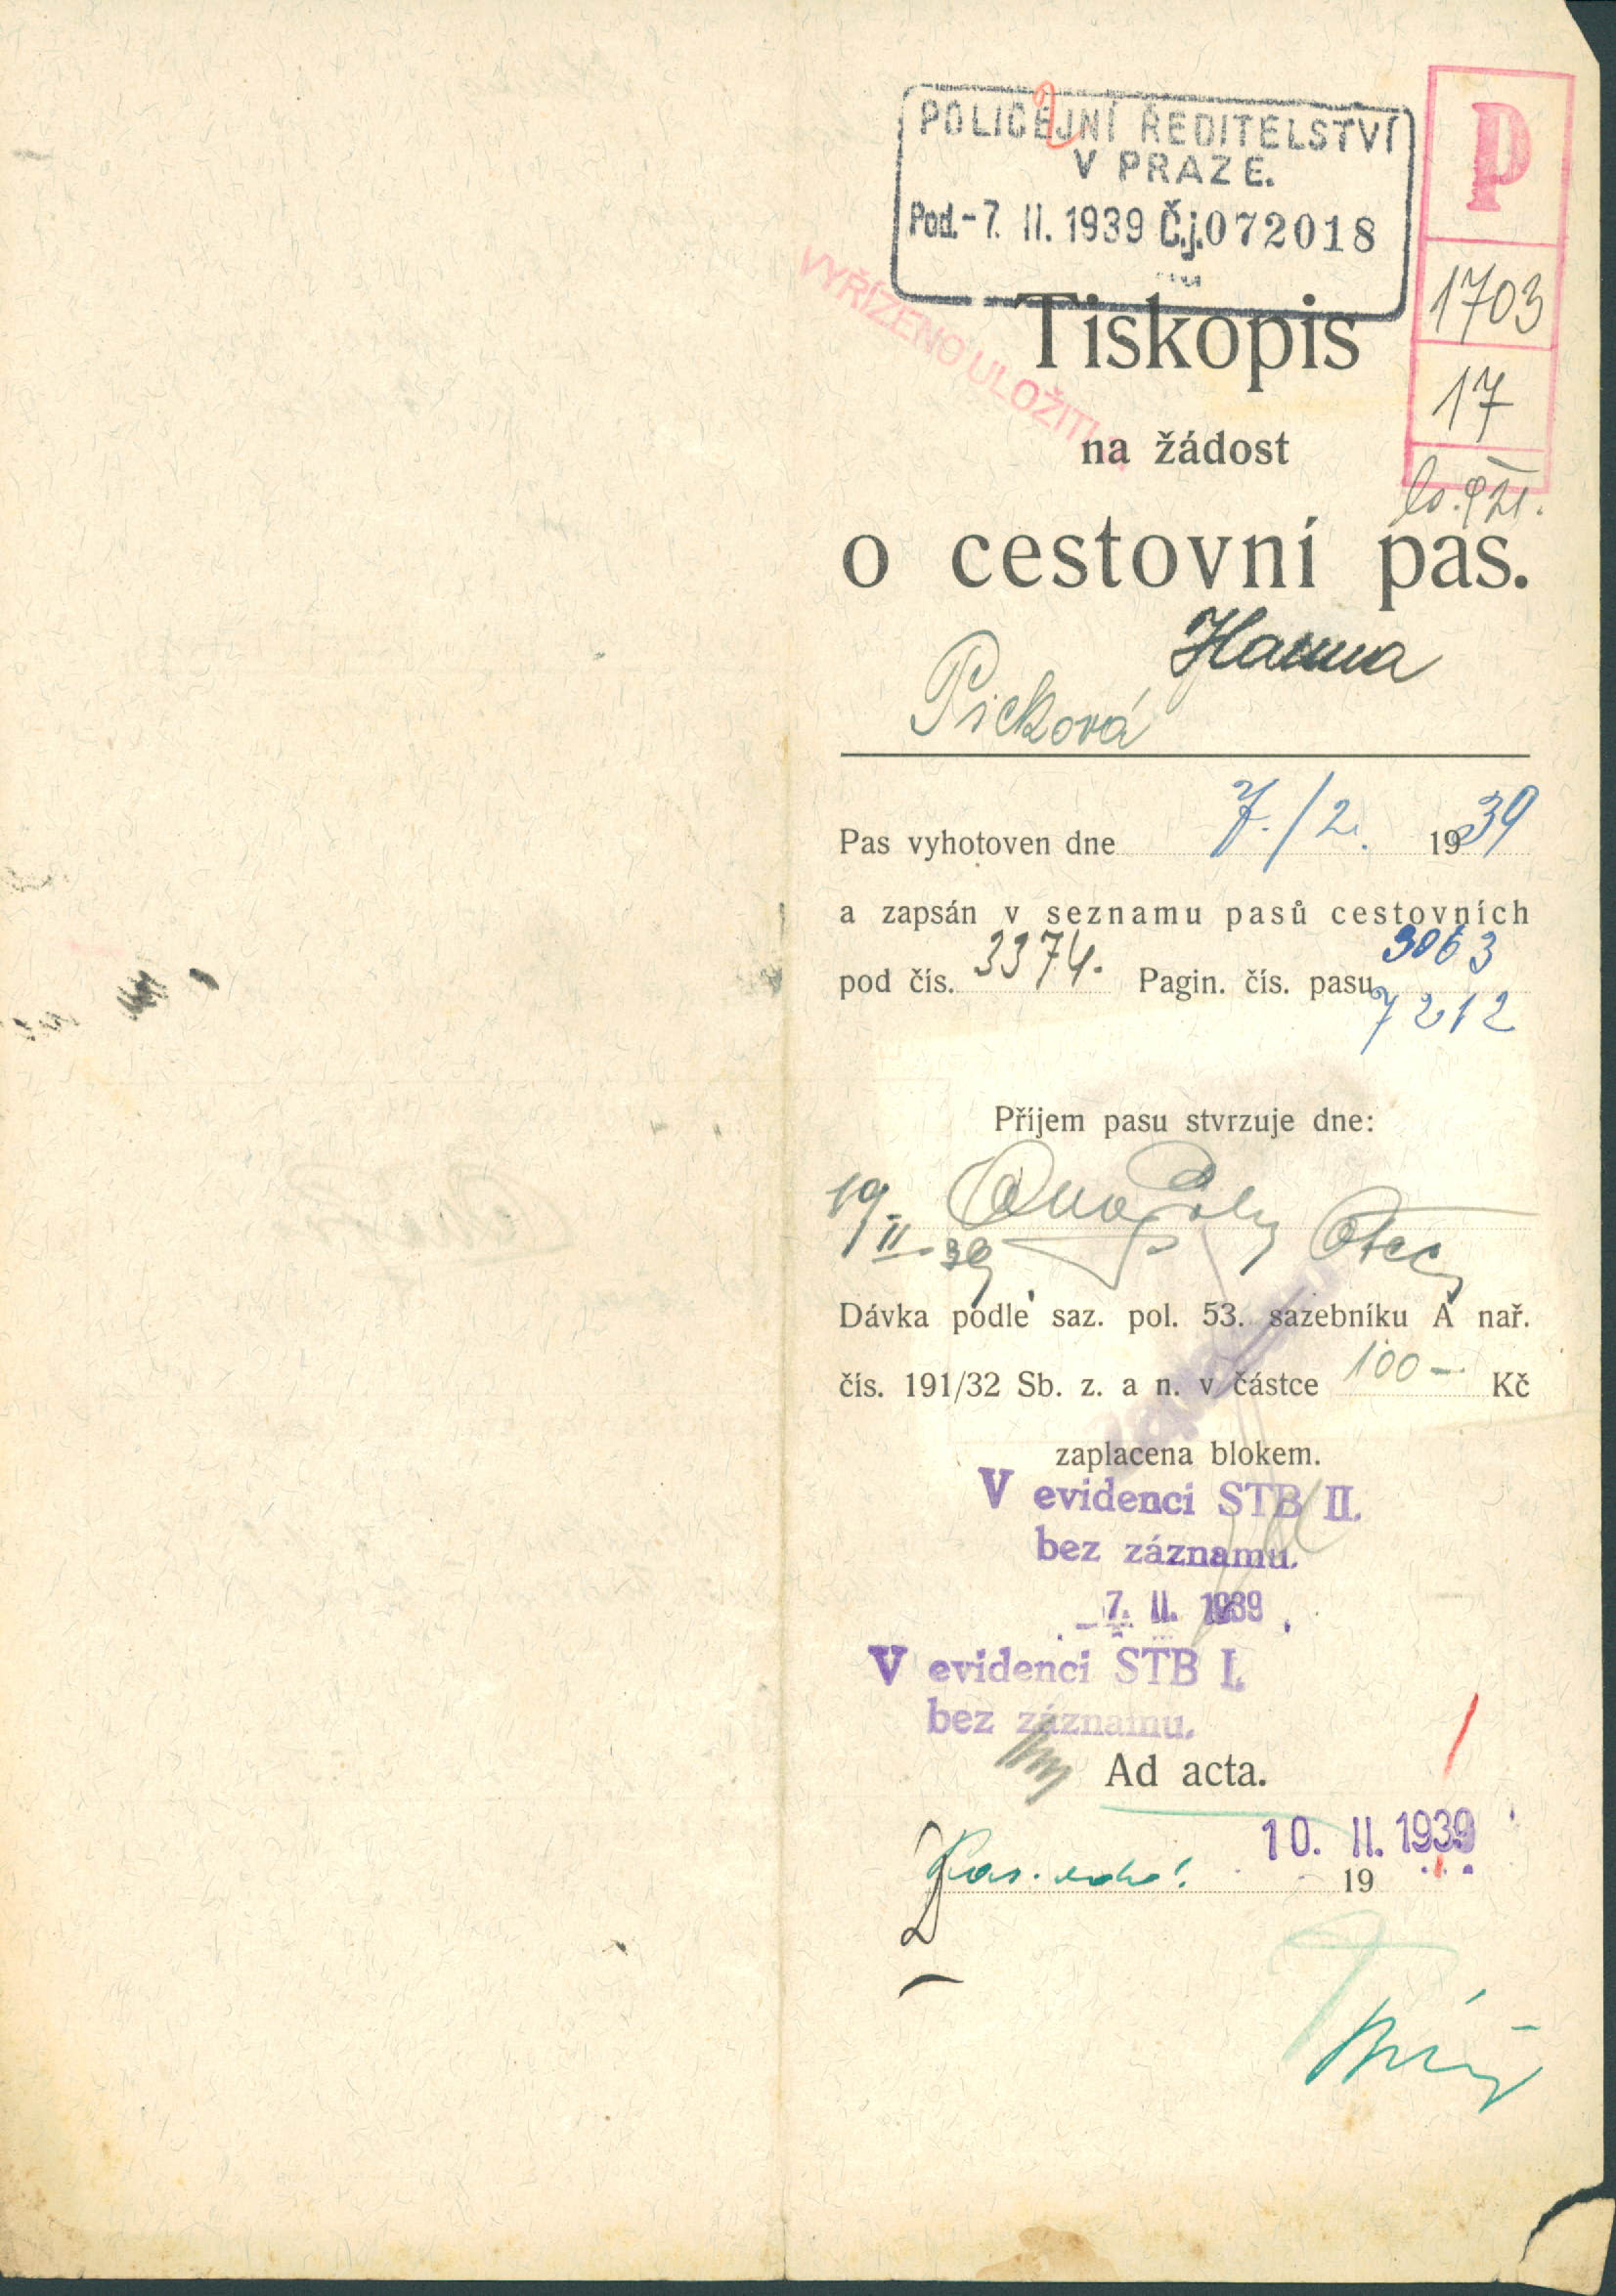 POLICEJNÍ ŘEDITELSTVÍ
V PRAZE.
Pod. -7. II. 1939 Č.j. 072018
P
1703
17
VYŘÍZENO ULOŽITI
Tiskopis
na žádost
o cestovní pas.
Hanna
Picková
Pas vyhotoven dne 7./2. 1939
a zapsán v seznamu pasů cestovních
pod čís. 3374. Pagin. čís. pasu 3063
7212
Příjem pasu stvrzuje dne:
19/II. 39 Otec
Dávka podle saz. pol. 53. sazebníku A nař.
čís. 191/32 Sb. z. a n. v částce 100 – Kč
zaplacena blokem.
V evidenci STB II.
bez záznamu.
-7. II. 1939
V evidenci STB I.
bez záznamu.
Ad acta.
10. II. 1939
19